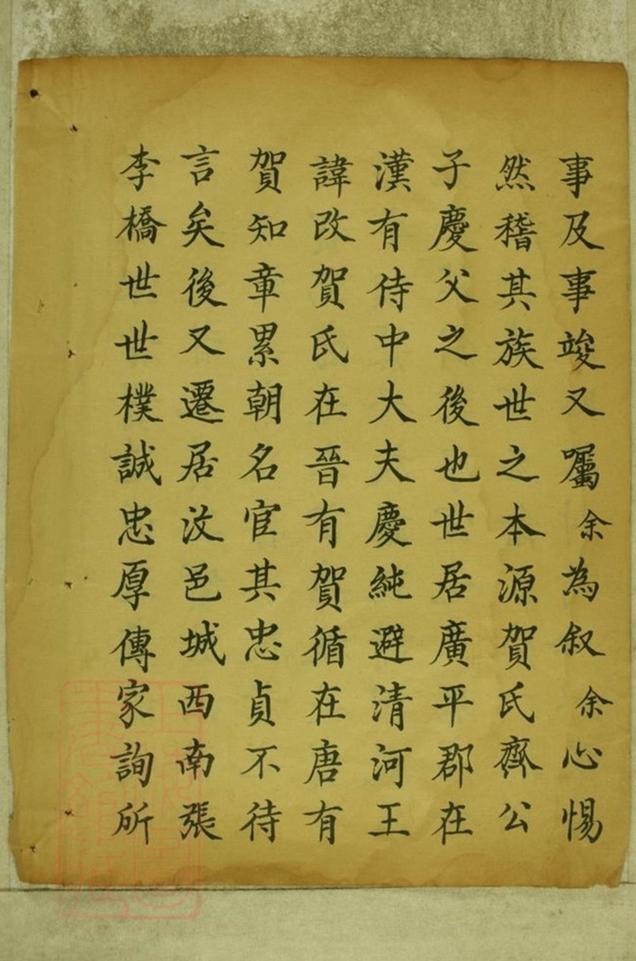 事及事竣又囑余為叙余心惕
然稽其族世之本源賀氏齊公
子慶父之後也世居廣平郡在
漢有侍中大夫慶純避清河王
諱改賀氏在晉有賀循在唐有
賀知章累朝名宦其忠貞不待
言矣後又遷居汶邑城西南張
李橋世世樸誠忠厚傳家詢所